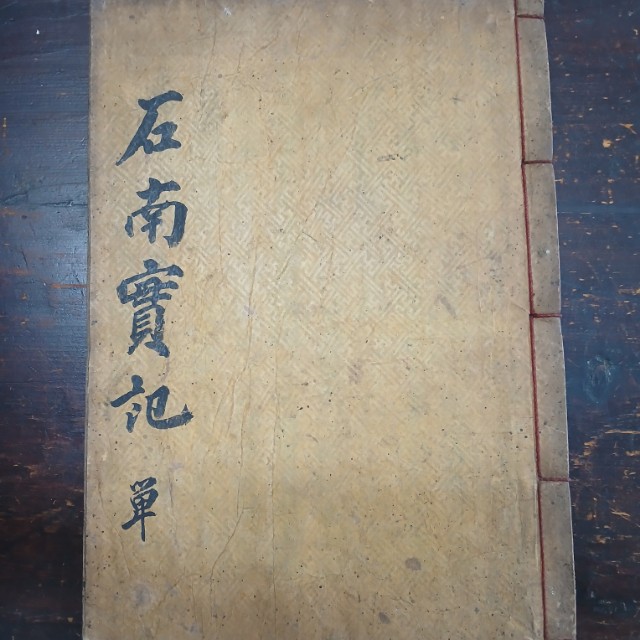 石南實記 單